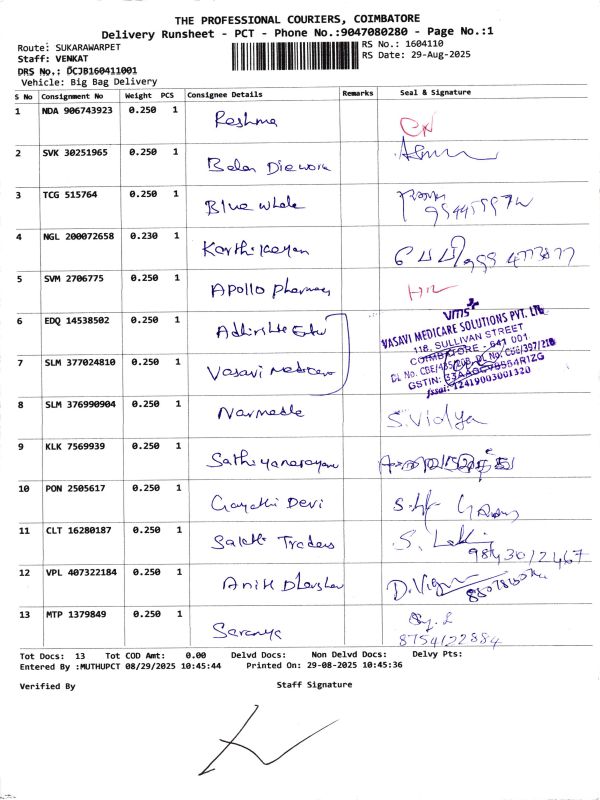 THE PROFESSIONAL COURIERS, COIMBATORE
Delivery Runsheet - PCT - Phone No.:9047080280 - Page No.:1
Route: SUKARAWARPET
RS No.: 1604110
Staff: VENKAT
RS Date: 29-Aug-2025
DRS No.: DCJB160411001
Vehicle: Big Bag Delivery
S No Consignment No Weight PCS Consignee Details Remarks Seal & Signature
1 NDA 906743923 0.250 1 Reshma
2 SVK 30251965 0.250 1
3 TCG 515764 0.250 1 Blue whale
4 NGL 200072658 0.230 1 Karthikeyan
5 SVM 2706775 0.250 1 Apollo pharmacy
6 EDQ 14538502 0.250 1
7 SLM 377024810 0.250 1 Vasavi medicare
vms
VASAVI MEDICARE SOLUTIONS PVT. LTD
118, SULLIVAN STREET
COIMBATORE - 641 001
fssai: 12419003001320
8 SLM 376990904 0.250 1 Narmadha S. Vidya
9 KLK 7569939 0.250 1 Sathiyanarayan
10 PON 2505617 0.250 1 Gayathi Devi
11 CLT 16280187 0.250 1 Sakthi Traders
9843012467
12 VPL 407322184 0.250 1
13 MTP 1379849 0.250 1 Saranya
8754122884
Tot Docs: 13 Tot COD Amt: 0.00 Delvd Docs: Non Delvd Docs: Delvy Pts:
Entered By :MUTHUPCT 08/29/2025 10:45:44 Printed On: 29-08-2025 10:45:36
Verified By Staff Signature